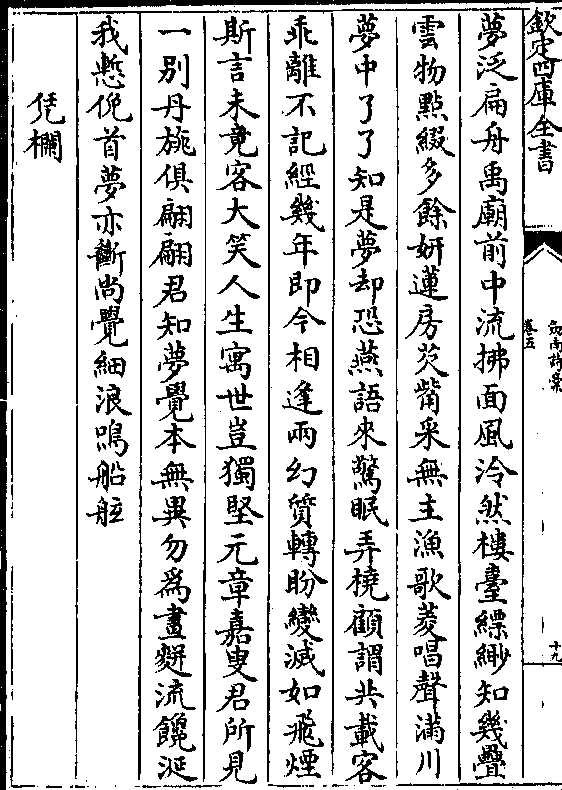 欽定四庫全書
劍南詩藁
卷五
十九
夢泛扁舟禹廟前中流拂面風泠然樓臺縹緲知幾疊
雲物點綴多餘妍蓮房芡觜采無主漁歌菱唱聲滿川
夢中了了知是夢却恐燕語來驚眠弄橈顧謂共載客
乖離不記經幾年即今相逢兩幻質轉盼變滅如飛煙
斯言未竟客大笑人生寓世豈獨堅元章嘉叟君所見
一別丹旐俱翩翩君知夢覺本無異勿為畫麨流饞涎
我慙俛首夢亦斷尚覺細浪鳴船舷
凭欄